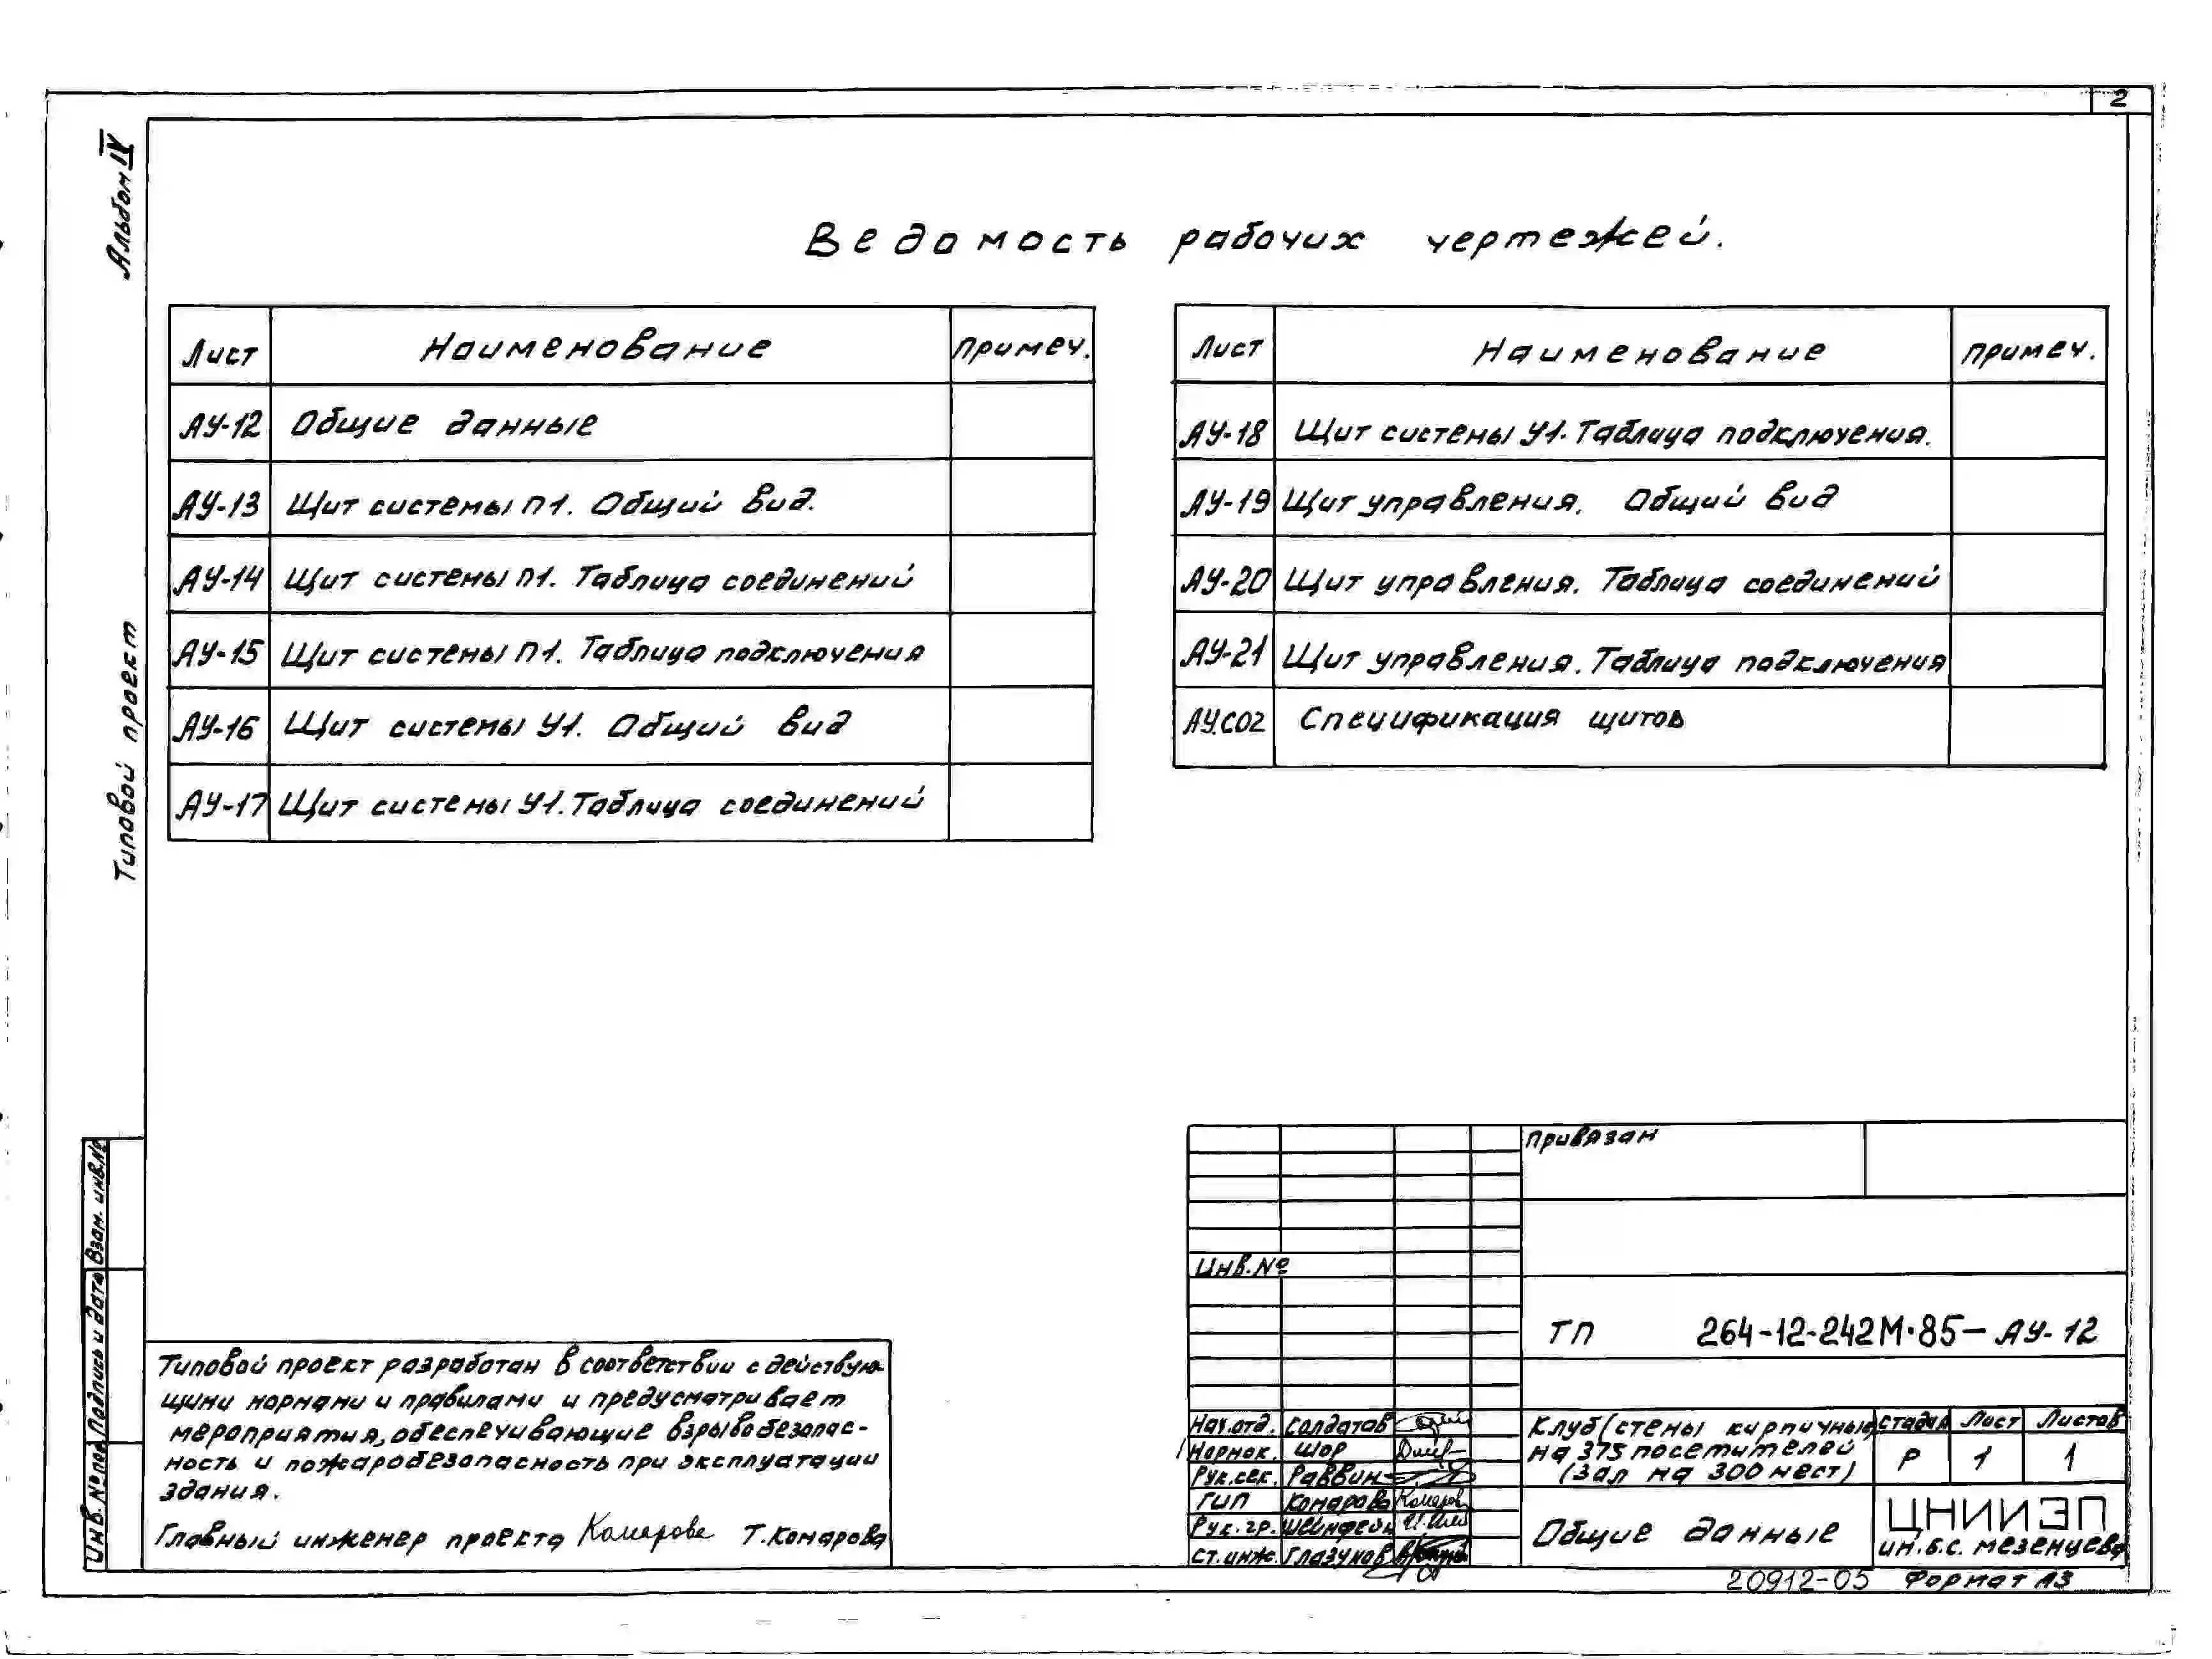 2
Альбом IV
Типовой проект
Ведомость рабочих чертежей.
Лист Наименование примеч.
АУ-12 Общие данные
АУ-13 Щит системы П1. Общий вид.
АУ-14 Щит системы П1. Таблица соединений
АУ-15 Щит системы П1. Таблица подключения
АУ-16 Щит системы У1. Общий вид
АУ-17 Щит системы У1. Таблица соединений
Лист Наименование примеч.
АУ-18 Щит системы У1. Таблица подключения.
АУ-19 Щит управления. Общий вид
АУ-20 Щит управления. Таблица соединений
АУ-21 Щит управления. Таблица подключения
АУ.СО2 Спецификация щитов
Взам. инв.№
Подпись и дата
Инв. № под
Типовой проект разработан в соответствии с действую-
щими нормами и правилами и предусматривает
мероприятия, обеспечивающие взрывобезопас-
ность и пожаробезопасность при эксплуатации
здания.
Главный инженер проекта Комарова Т. Комарова
привязан
Инв.№
ТП 264-12-242М·85-АУ-12
Нач.отд. Солдатов
Нормок. Шор
Рук.сек. Раввин
ГИП Комарова Комаров
Рук.гр. Шейнфейн
Ст.инж. Глазунов
Клуб (стены кирпичные)
на 375 посетителей
(зал на 300 мест)
стадия Лист Листов
Р 1 1
Общие данные
ЦНИИЭП
им. Б.С. Мезенцева
20912-05 Формат А3